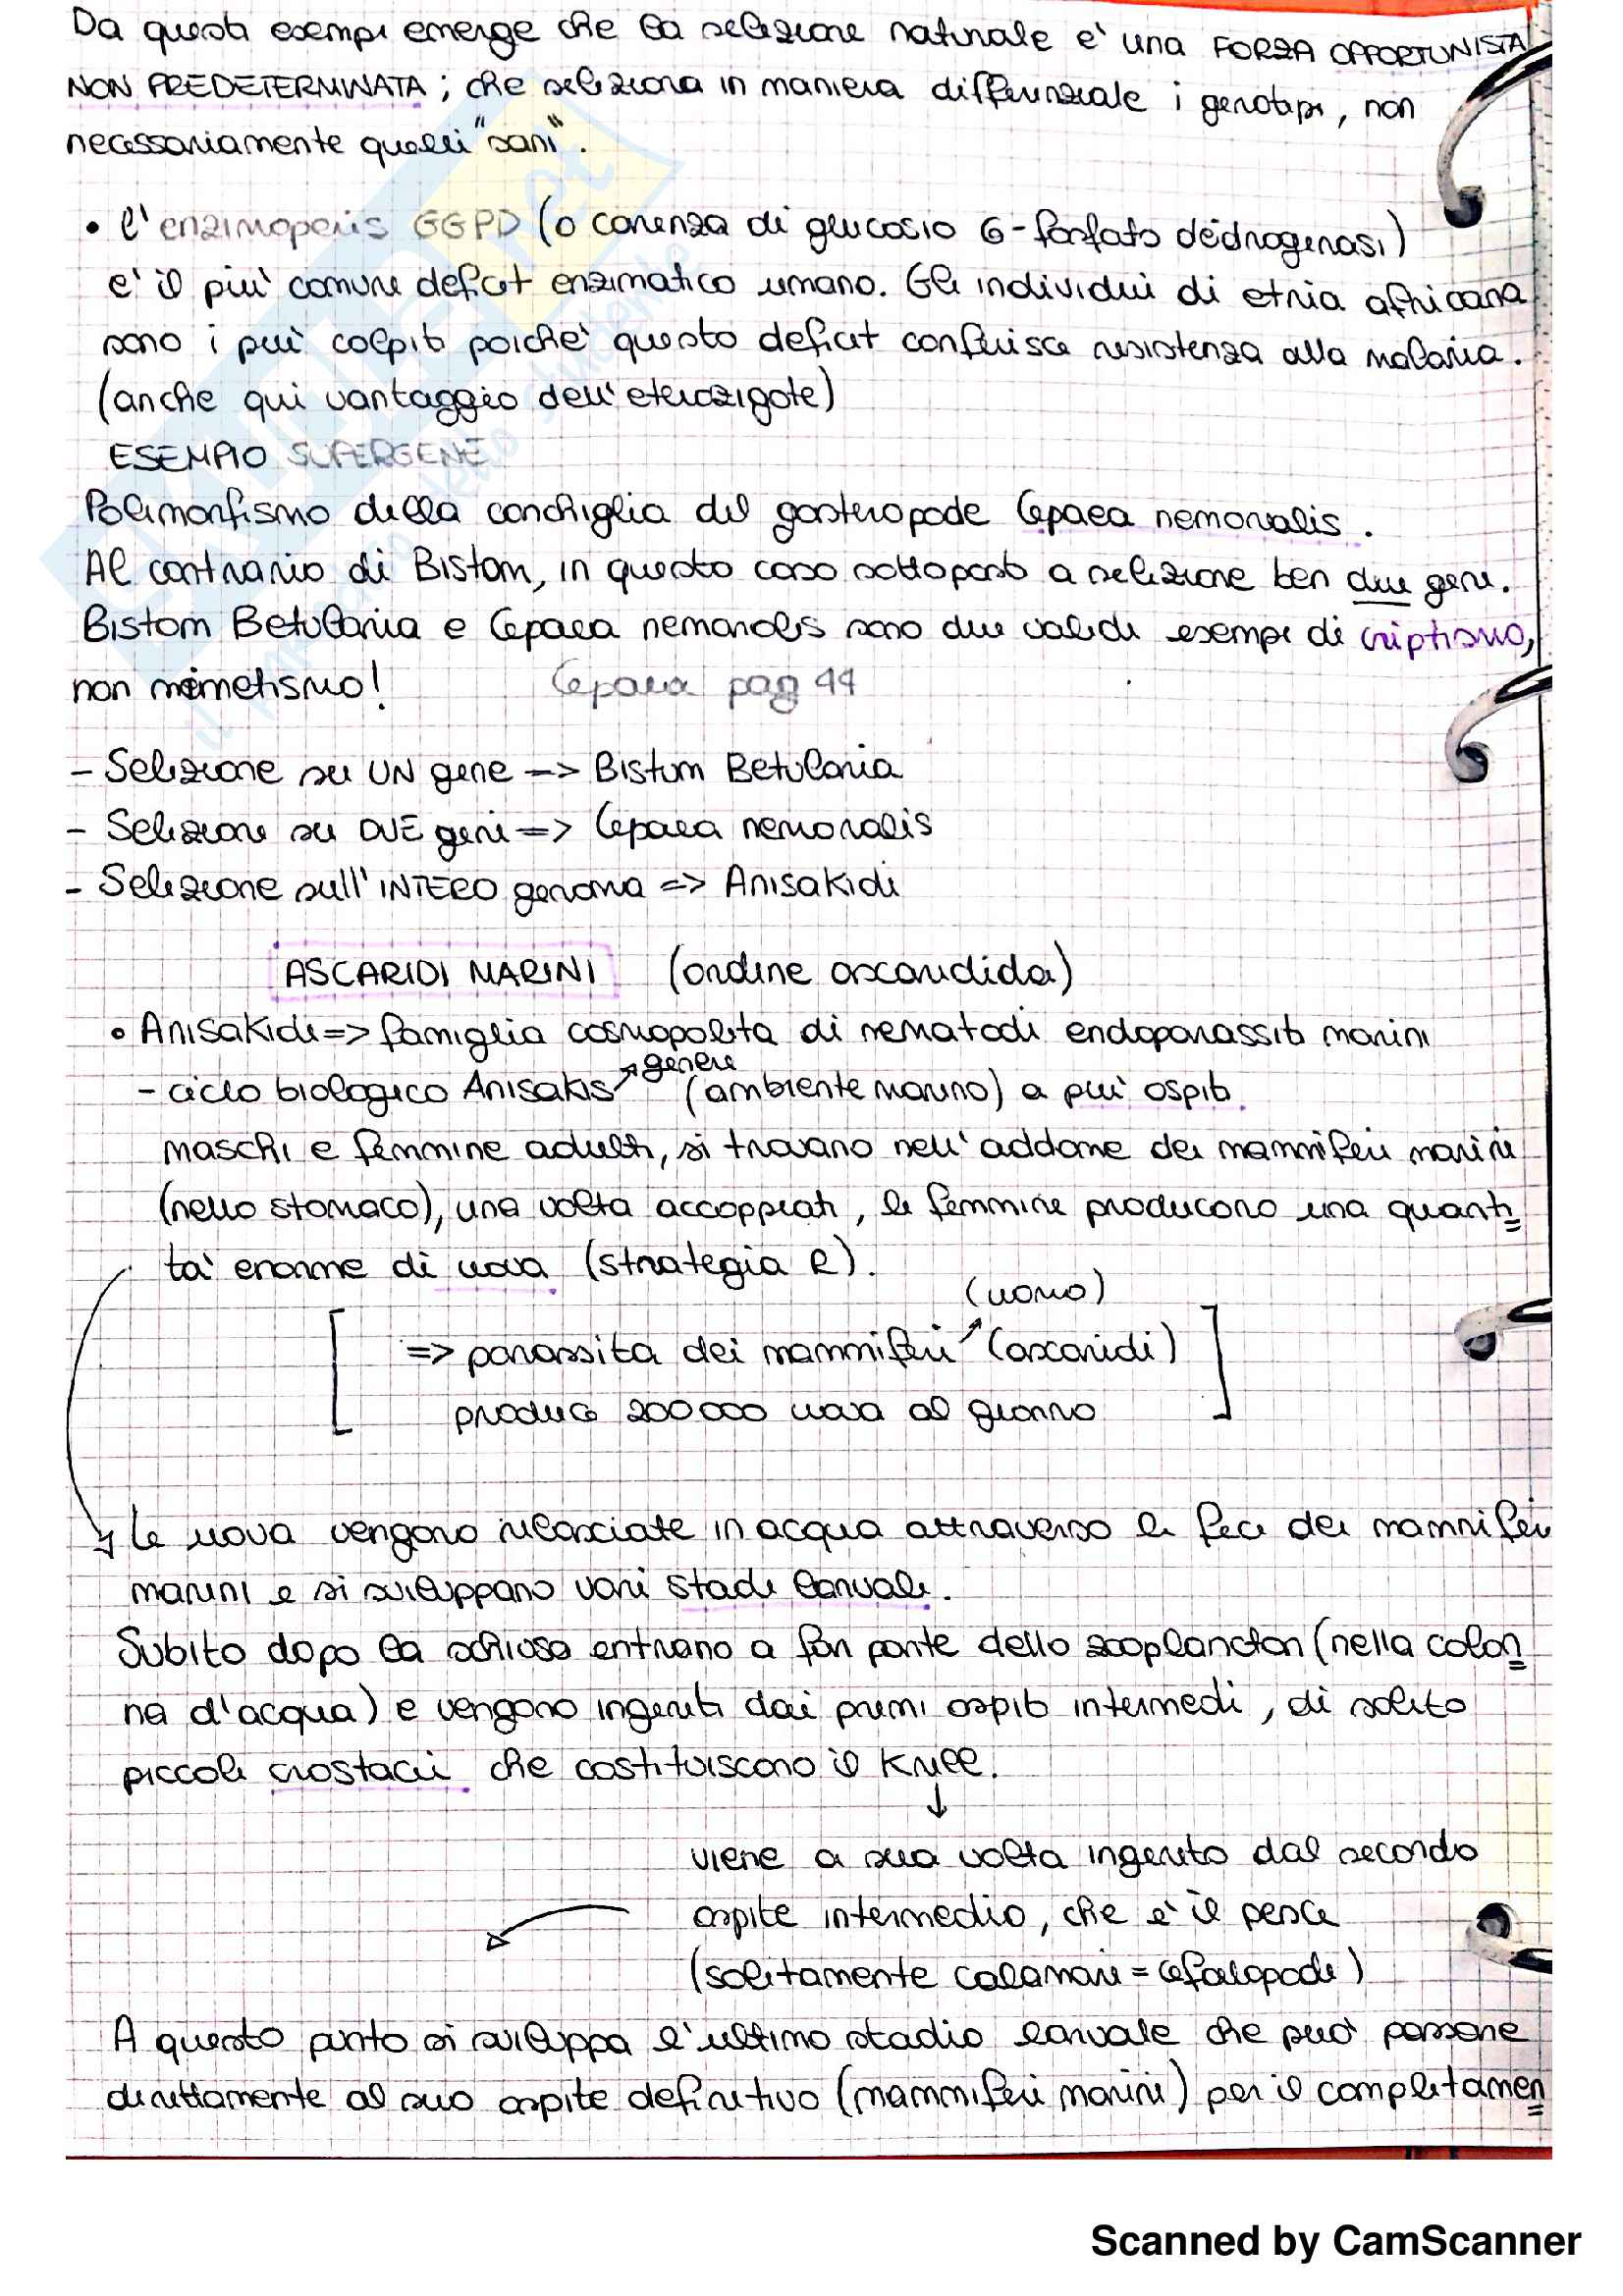 Da questi esempi emerge che la selezione naturale e' una FORZA OPPORTUNISTA
NON PREDETERMINATA ; che seleziona in maniera differenziale i genotipi, non
necessariamente quelli "sani".
• l'enzimopenis GGPD (o carenza di glucosio 6-fosfato deidrogenasi)
e' il piu' comune deficit enzimatico umano. Gli individui di etnia africana
sono i piu' colpiti poiche' questo deficit conferisce resistenza alla malaria.
(anche qui vantaggio dell'eterozigote)
ESEMPIO SUPERGENE
Polimorfismo della conchiglia del gasteropode Cepaea nemoralis.
Al contrario di Biston, in questo caso sottoposti a selezione ben due geni.
Biston Betularia e Cepaea nemoralis sono due validi esempi di criptismo,
non mimetismo! Cepaea pag 44
- Selezione su UN gene => Biston Betularia
- Selezione su DUE geni => Cepaea nemoralis
- Selezione sull'INTERO genoma => Anisakidi
ASCARIDI MARINI (ordine ascaridida)
• Anisakidi => famiglia cosmopolita di nematodi endoparassiti marini
- ciclo biologico Anisakis ↗genere (ambiente marino) a piu' ospiti.
maschi e femmine adulti, si trovano nell'addome dei mammiferi marini
(nello stomaco), una volta accoppiati, le femmine producono una quanti=
ta' enorme di uova (strategia R).
(uomo)
[ => parassita dei mammiferi ↗ (ascaridi)
produce 200000 uova al giorno ]
Le uova vengono rilasciate in acqua attraverso le feci dei mammiferi
marini e si sviluppano vari stadi larvali.
Subito dopo la schiusa entrano a far parte dello zooplancton (nella colon=
na d'acqua) e vengono ingeriti dai primi ospiti intermedi, di solito
piccoli crostacei che costituiscono il Krill.
↓
viene a sua volta ingerito dal secondo
ospite intermedio, che e' il pesce
(solitamente calamari = cefalopodi)
A questo punto si sviluppa l'ultimo stadio larvale che puo' passare
direttamente al suo ospite definitivo (mammiferi marini) per il completamen=
Scanned by CamScanner